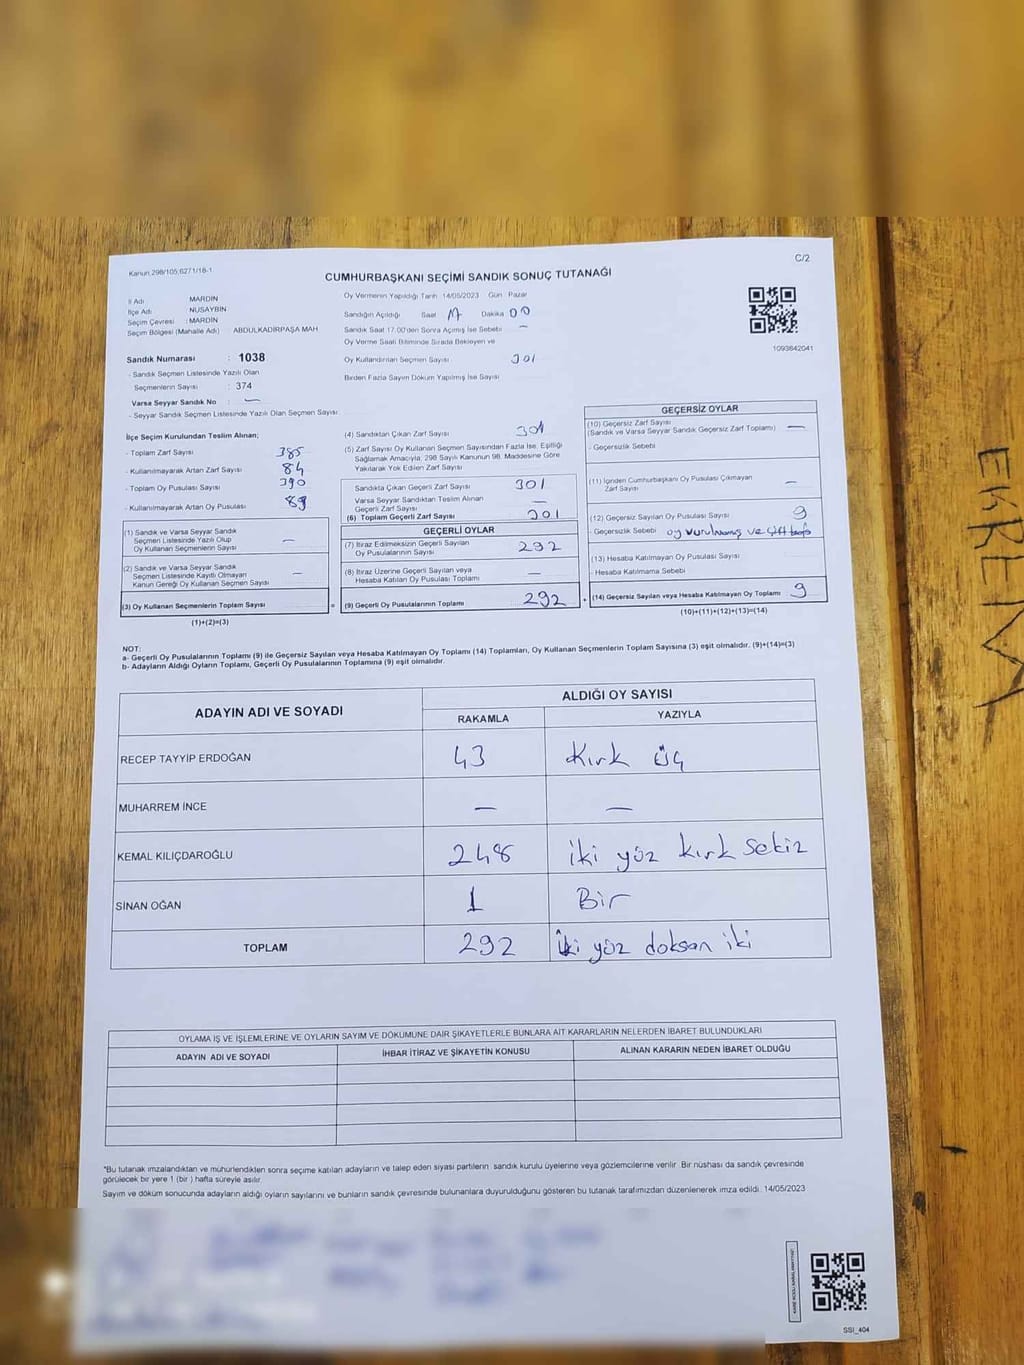 Kanun:298/105;6271/18-1
C/2
CUMHURBAŞKANI SEÇİMİ SANDIK SONUÇ TUTANAĞI
İl Adı : MARDİN
İlçe Adı : NUSAYBİN
Seçim Çevresi : MARDİN
Seçim Bölgesi (Mahalle Adı) : ABDULKADİRPAŞA MAH
Sandık Numarası : 1038
- Sandık Seçmen Listesinde Yazılı Olan
Seçmenlerin Sayısı : 374
Varsa Seyyar Sandık No : —
- Seyyar Sandık Seçmen Listesinde Yazılı Olan Seçmen Sayısı:
Oy Vermenin Yapıldığı Tarih :14/05/2023 Gün : Pazar
Sandığın Açıldığı Saat 17 Dakika 00
Sandık Saat 17.00'den Sonra Açılmış İse Sebebi: —
Oy Verme Saati Bitiminde Sırada Bekleyen ve
Oy Kullandırılan Seçmen Sayısı 301
Birden Fazla Sayım Döküm Yapılmış İse Sayısı
1093842041
İlçe Seçim Kurulundan Teslim Alınan;
- Toplam Zarf Sayısı 385
- Kullanılmayarak Artan Zarf Sayısı 84
- Toplam Oy Pusulası Sayısı 390
- Kullanılmayarak Artan Oy Pusulası 89
(1) Sandık ve Varsa Seyyar Sandık
Seçmen Listesinde Yazılı Olup
Oy Kullanan Seçmenlerin Sayısı —
(2) Sandık ve Varsa Seyyar Sandık
Seçmen Listesinde Kayıtlı Olmayan
Kanun Gereği Oy Kullanan Seçmen Sayısı —
(3) Oy Kullanan Seçmenlerin Toplam Sayısı
(1)+(2)=(3)
(4) Sandıktan Çıkan Zarf Sayısı 301
(5) Zarf Sayısı Oy Kullanan Seçmen Sayısından Fazla İse; Eşitliği
Sağlamak Amacıyla; 298 Sayılı Kanunun 98. Maddesine Göre
Yakılarak Yok Edilen Zarf Sayısı
Sandıkta Çıkan Geçerli Zarf Sayısı 301
Varsa Seyyar Sandıktan Teslim Alınan
Geçerli Zarf Sayısı —
(6) Toplam Geçerli Zarf Sayısı 301
GEÇERLİ OYLAR
(7) İtiraz Edilmeksizin Geçerli Sayılan
Oy Pusulalarının Sayısı 292
(8) İtiraz Üzerine Geçerli Sayılan veya
Hesaba Katılan Oy Pusulası Toplamı —
= (9) Geçerli Oy Pusulalarının Toplamı 292
GEÇERSİZ OYLAR
(10) Geçersiz Zarf Sayısı
(Sandık ve Varsa Seyyar Sandık Geçersiz Zarf Toplamı) —
- Geçersizlik Sebebi
(11) İçinden Cumhurbaşkanı Oy Pusulası Çıkmayan
Zarf Sayısı —
(12) Geçersiz Sayılan Oy Pusulası Sayısı 9
- Geçersizlik Sebebi oy vurulmamış ve çift
(13) Hesaba Katılmayan Oy Pusulası Sayısı
- Hesaba Katılmama Sebebi
+ (14) Geçersiz Sayılan veya Hesaba Katılmayan Oy Toplamı 9
(10)+(11)+(12)+(13)=(14)
NOT:
a- Geçerli Oy Pusulalarının Toplamı (9) ile Geçersiz Sayılan veya Hesaba Katılmayan Oy Toplamı (14) Toplamları, Oy Kullanan Seçmenlerin Toplam Sayısına (3) eşit olmalıdır. (9)+(14)=(3)
b- Adayların Aldığı Oyların Toplamı, Geçerli Oy Pusulalarının Toplamına (9) eşit olmalıdır.
ADAYIN ADI VE SOYADI
ALDIĞI OY SAYISI
RAKAMLA YAZIYLA
RECEP TAYYİP ERDOĞAN 43 Kırk üç
MUHARREM İNCE — —
KEMAL KILIÇDAROĞLU 248 iki yüz kırk sekiz
SİNAN OĞAN 1 Bir
TOPLAM 292 İki yüz doksan iki
OYLAMA İŞ VE İŞLEMLERİNE VE OYLARIN SAYIM VE DÖKÜMÜNE DAİR ŞİKAYETLERLE BUNLARA AİT KARARLARIN NELERDEN İBARET BULUNDUKLARI
ADAYIN ADI VE SOYADI İHBAR İTİRAZ VE ŞİKAYETİN KONUSU ALINAN KARARIN NEDEN İBARET OLDUĞU
*Bu tutanak imzalandıktan ve mühürlendikten sonra seçime katılan adayların ve talep eden siyasi partilerin sandık kurulu üyelerine veya gözlemcilerine verilir. Bir nüshası da sandık çevresinde
görülecek bir yere 1 (bir ) hafta süreyle asılır.
Sayım ve döküm sonucunda adayların aldığı oyların sayılarını ve bunların sandık çevresinde bulunanlara duyurulduğunu gösteren bu tutanak tarafımızdan düzenlenerek imza edildi. 14/05/2023
SSI_404
EKREM